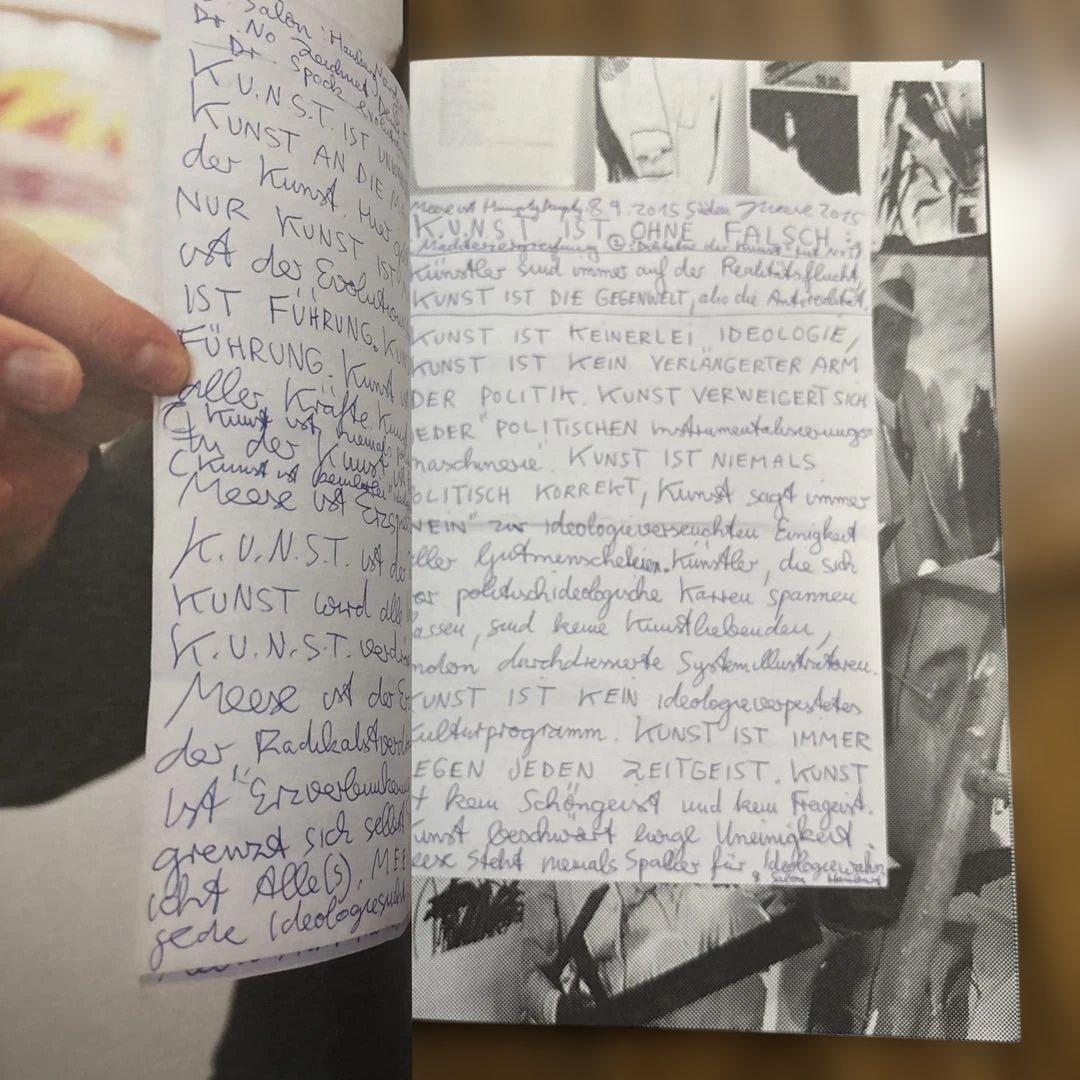 Salon: Hamburg
Dr. No zeichnet
Dr. Spock
K.U.N.S.T. IST
KUNST AN DIE
der Kunst. Hier
NUR KUNST IST
ist der Evolution
IST FÜHRUNG. KU
FÜHRUNG. Kunst
aller Kräfte. Kuns
(Kunst ist niemals
In der Kunst
(Kunst ist keinerlei
Meese ist Erz
K.U.N.S.T. ist de
KUNST wird alle
K.U.N.S.T. verd
Meese ist der Er
der Radikalst
ist "Erz
grenzt sich selbst
icht Alle(s), MEE
jede Ideologie
Meese ist Humpty Dumpty 8.9.2015 Süden Meese 2015
K.U.N.S.T IST OHNE FALSCH:
Machtergreifung der Kunst
Künstler sind immer auf der Realitätsflucht,
KUNST IST DIE GEGENWELT, also die Antirealität.
KUNST IST KEINERLEI IDEOLOGIE,
KUNST IST KEIN VERLÄNGERTER ARM
DER POLITIK. KUNST VERWEIGERT SICH
EDER "POLITISCHEN Instrumentalisierungs-
maschinerie". KUNST IST NIEMALS
OLITISCH KORREKT, Kunst sagt immer
NEIN" zur ideologieverseuchten Einigkeit
ller Gutmenscheleien. Künstler, die sich
or politischideologische Karren spannen
assen, sind keine Kunstliebenden,
ndern durchdressierte Systemillustratoren.
KUNST IST KEIN ideologieverpestetes
Kulturprogramm. KUNST IST IMMER
EGEN JEDEN ZEITGEIST. KUNST
t kein Schöngeist und kein Freigeist.
unst beschwört ewige Uneinigkeit
eese steht niemals Spalier für Ideologiewahn
Salon Hamburg